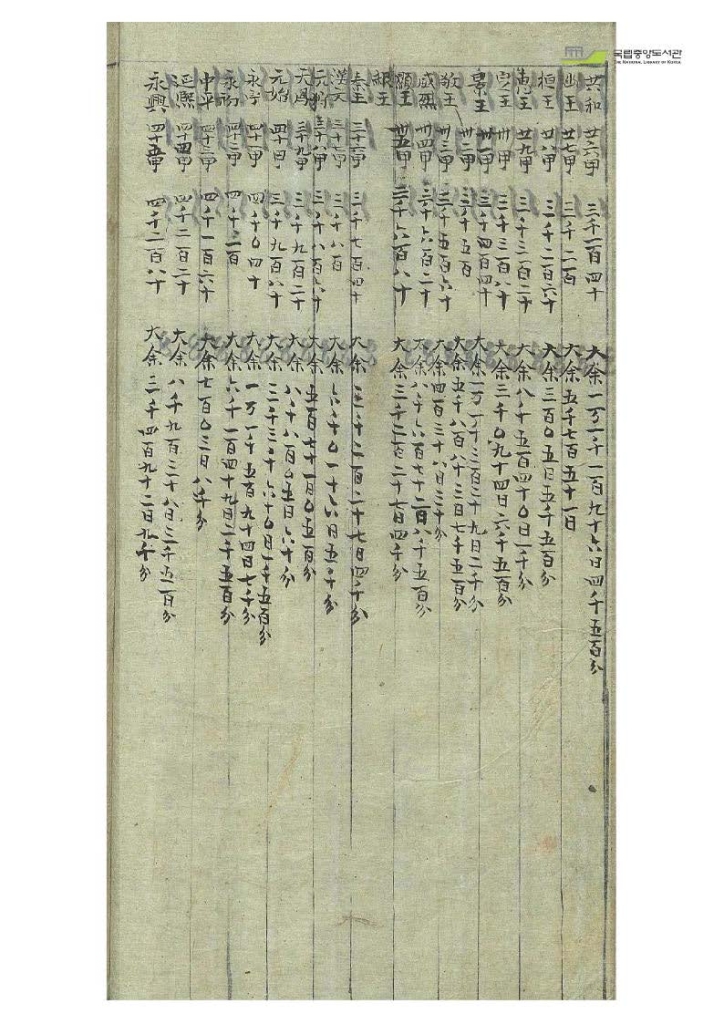 국립중앙도서관
THE NATIONAL LIBRARY OF KOREA
共和 廿六甲 三千一百四十 大余一万一千一百九十六日四千五百分
幽王 廿七甲 三千二百 大余五千七百五十一日
桓王 廿八甲 三千二百六十 大余三百〇五日五千五百分
惠王 廿九甲 三千三百二十 大余八千五百四十〇日一千分
定王 卅甲 三千三百八十 大余三千〇九十四日六千五百分
景王 卅一甲 三千四百四十 大余一万一千三百二十九日二千分
卅二甲 三千五百 大余五千八百八十三日七千五百分
敬王 卅三甲 三千五百六十 大余四百三十八日三千分
威烈 卅四甲 三千六百二十 大余八千六百七十二日八千五百分
顯王 卅五甲 三千六百八十 大余三千二百二十七日四千分
赧王
秦王 三十六甲 三千七百四十 大余
漢文 三十七甲 三千八百 大余六千〇一十六日五千分
元狩 三十八甲 三千八百六十 大余五百七十一日〇五百分
三十九甲 三千九百二十 大余八千八百〇五日六千分
元始 四十甲 三千九百八十 大余三千三百六十〇日一千五百分
永平 四十一甲 四千〇四十 大余一万一千五百九十四日七千分
永初 四十二甲 四千一百 大余六千一百四十九日二千五百分
中平 四十三甲 四千一百六十 大余七百〇三日八千分
延熙 四十四甲 四千二百二十 大余八千九百三十八日三千五百分
永興 四十五甲 四千二百八十 大余三千四百九十二日九千分